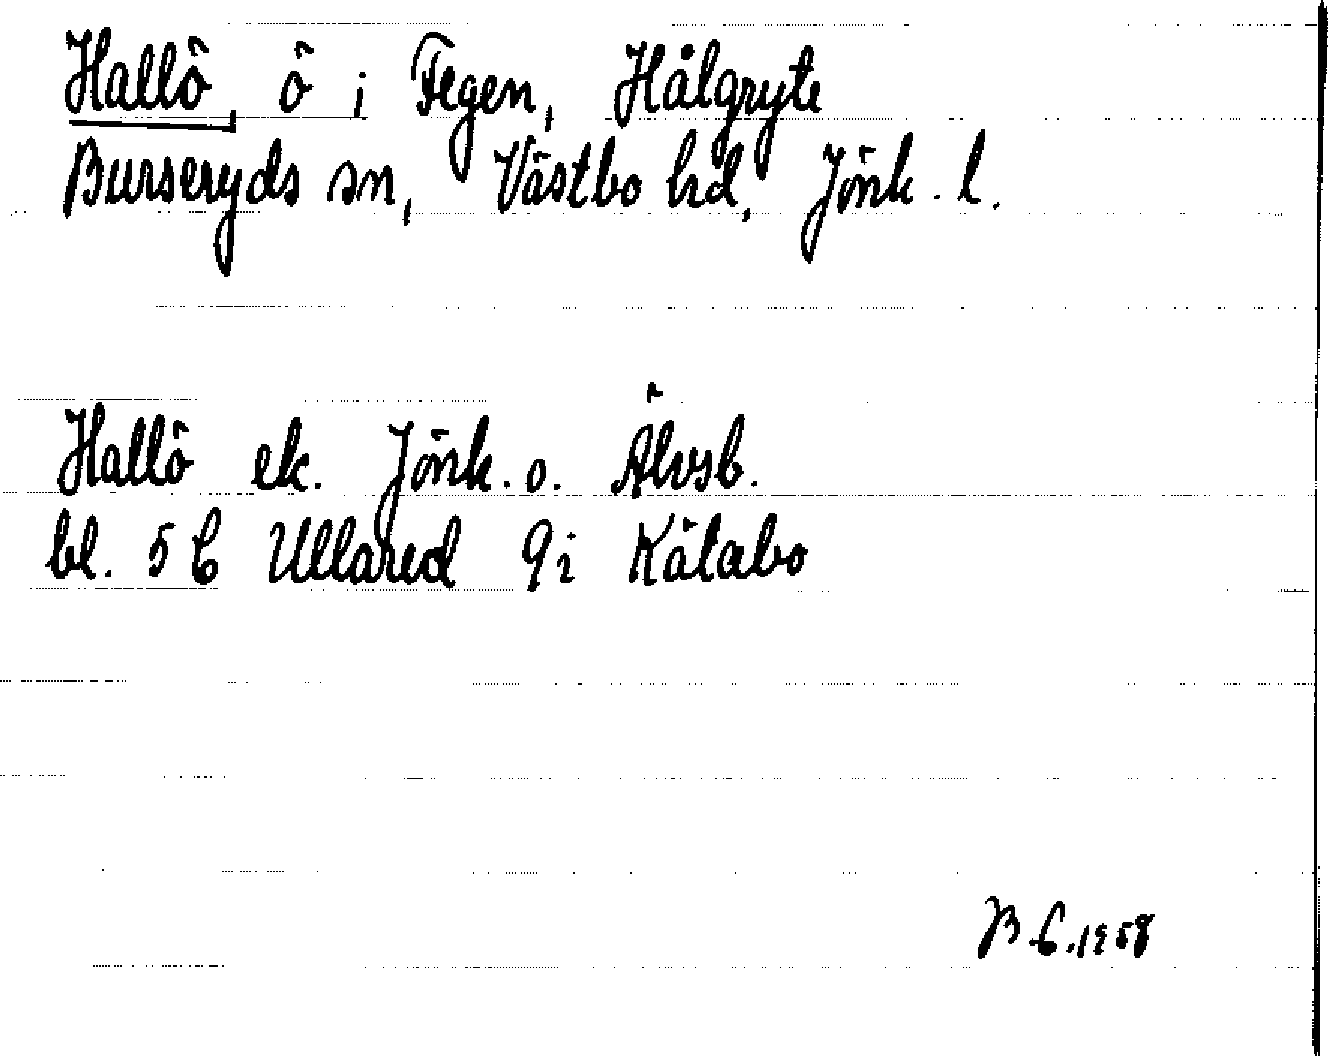 Hallö, ö i Fegen, Hålgryte
Burseryds sn, Västbo hd, Jönk. l.
Hallö ek. Jönk. o. Älvsb.
bl. 5 C Ullared 9 i Kätabo
B.L. 1958